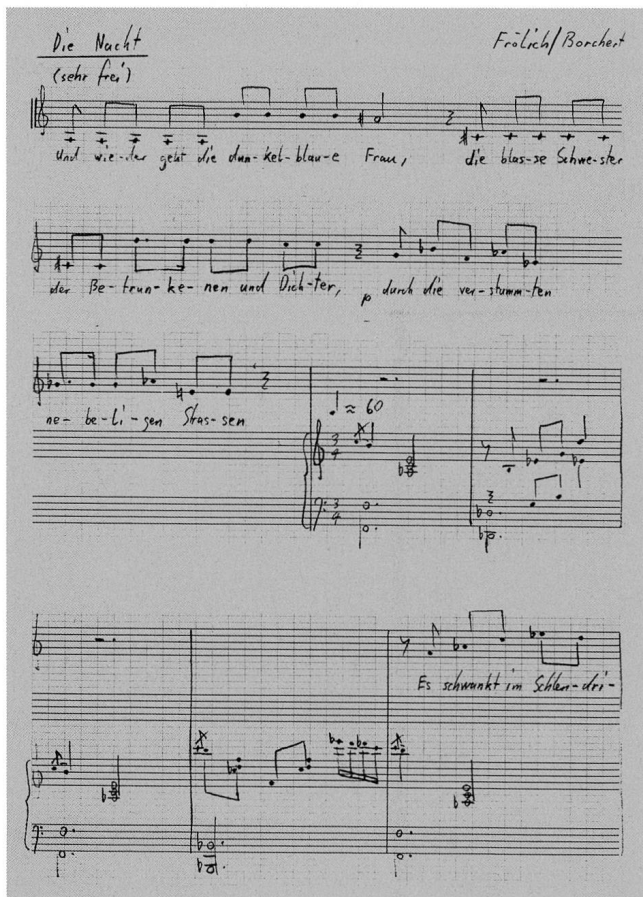 Die Nacht
Frölich/Borchert
(sehr frei)
Und wie-der geht die dun-kel-blau-e Frau, die blas-se Schwe-ster
der Be-trun-ke-nen und Dich-ter, p durch die ver-stumm-ten
ne-be-li-gen Stras-sen
♩ ≈ 60
3 4
3 4
Es schwankt im Schlen-dri-